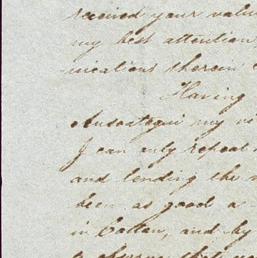 received your valu
my best attention
nications therein
Having
my vi
I can only repeat
and lending the
been as good a
in Cotton, and by